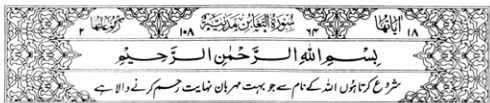 اٰیَاتُهَا ۱۸ ۶۴ سُوْرَةُ التَّغَابُنِ مَدَنِيَّةٌ ۱۰۸ رُكُوْعَاتُهَا ۲
بِسْمِ اللهِ الرَّحْمٰنِ الرَّحِيْمِ
شروع کرتا ہوں اللہ کے نام سے جو بہت مہربان نہایت رحم کرنے والا ہے